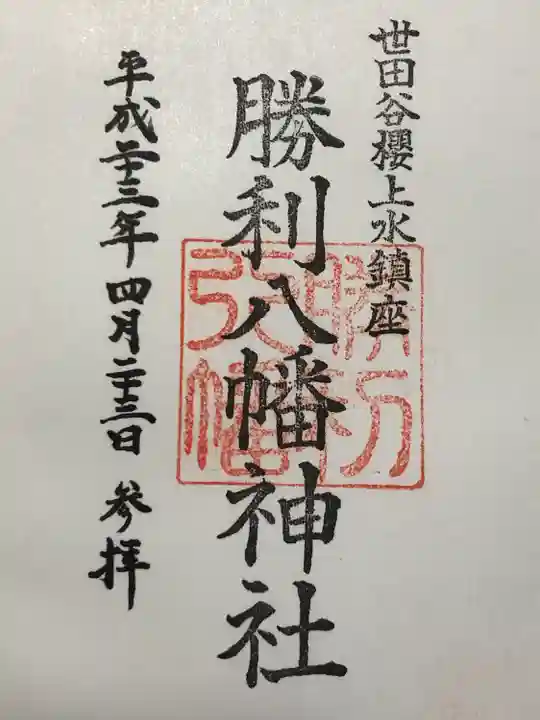 世田谷櫻上水鎮座
勝利八幡神社
平成二十三年四月二十三日 参拝
勝利
八幡